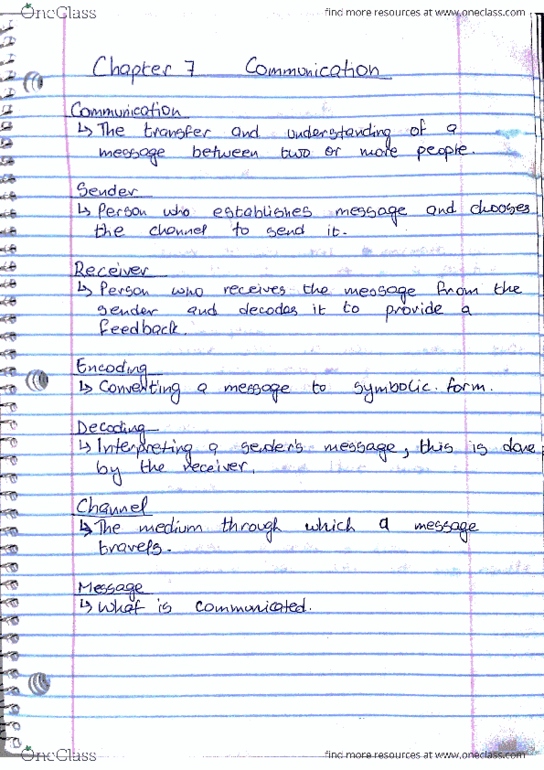 OneClass
find more resources at www.oneclass.com
Chapter 7 Communication
Communication
↳ The transfer and understanding of a
message between two or more people.
Sender
↳ Person who establishes message and chooses
the channel to send it.
Receiver
↳ Person who receives the message from the
sender and decodes it to provide a
feedback.
Encoding
↳ Converting a message to symbolic form.
Decoding
↳ Interpreting a sender's message, this is done
by the receiver.
Channel
↳ The medium through which a message
travels.
Message
↳ What is communicated.
OneClass
find more resources at www.oneclass.com